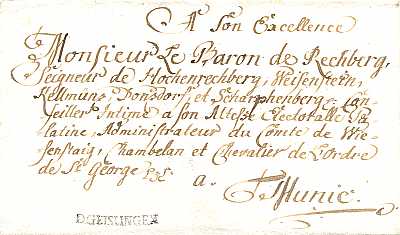 A Son Excellence
Monsieur Le Baron de Rechberg,
Seigneur de Hochenrechberg, Weisenstein,
Kellmunz, Donsdorf et Scharphenberg, Con-
seiller Intime a son Altesse Electoralle Pa-
latine, Administrateur du Comte de Wie-
senstaig, Chambelan et Chevalier de L'ordre
de St. George
a.
Munic.
D.GEISLINGEN